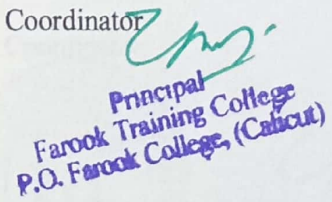 Coordinator
Principal
Farook Training College
P.O. Farook College, (Calicut)